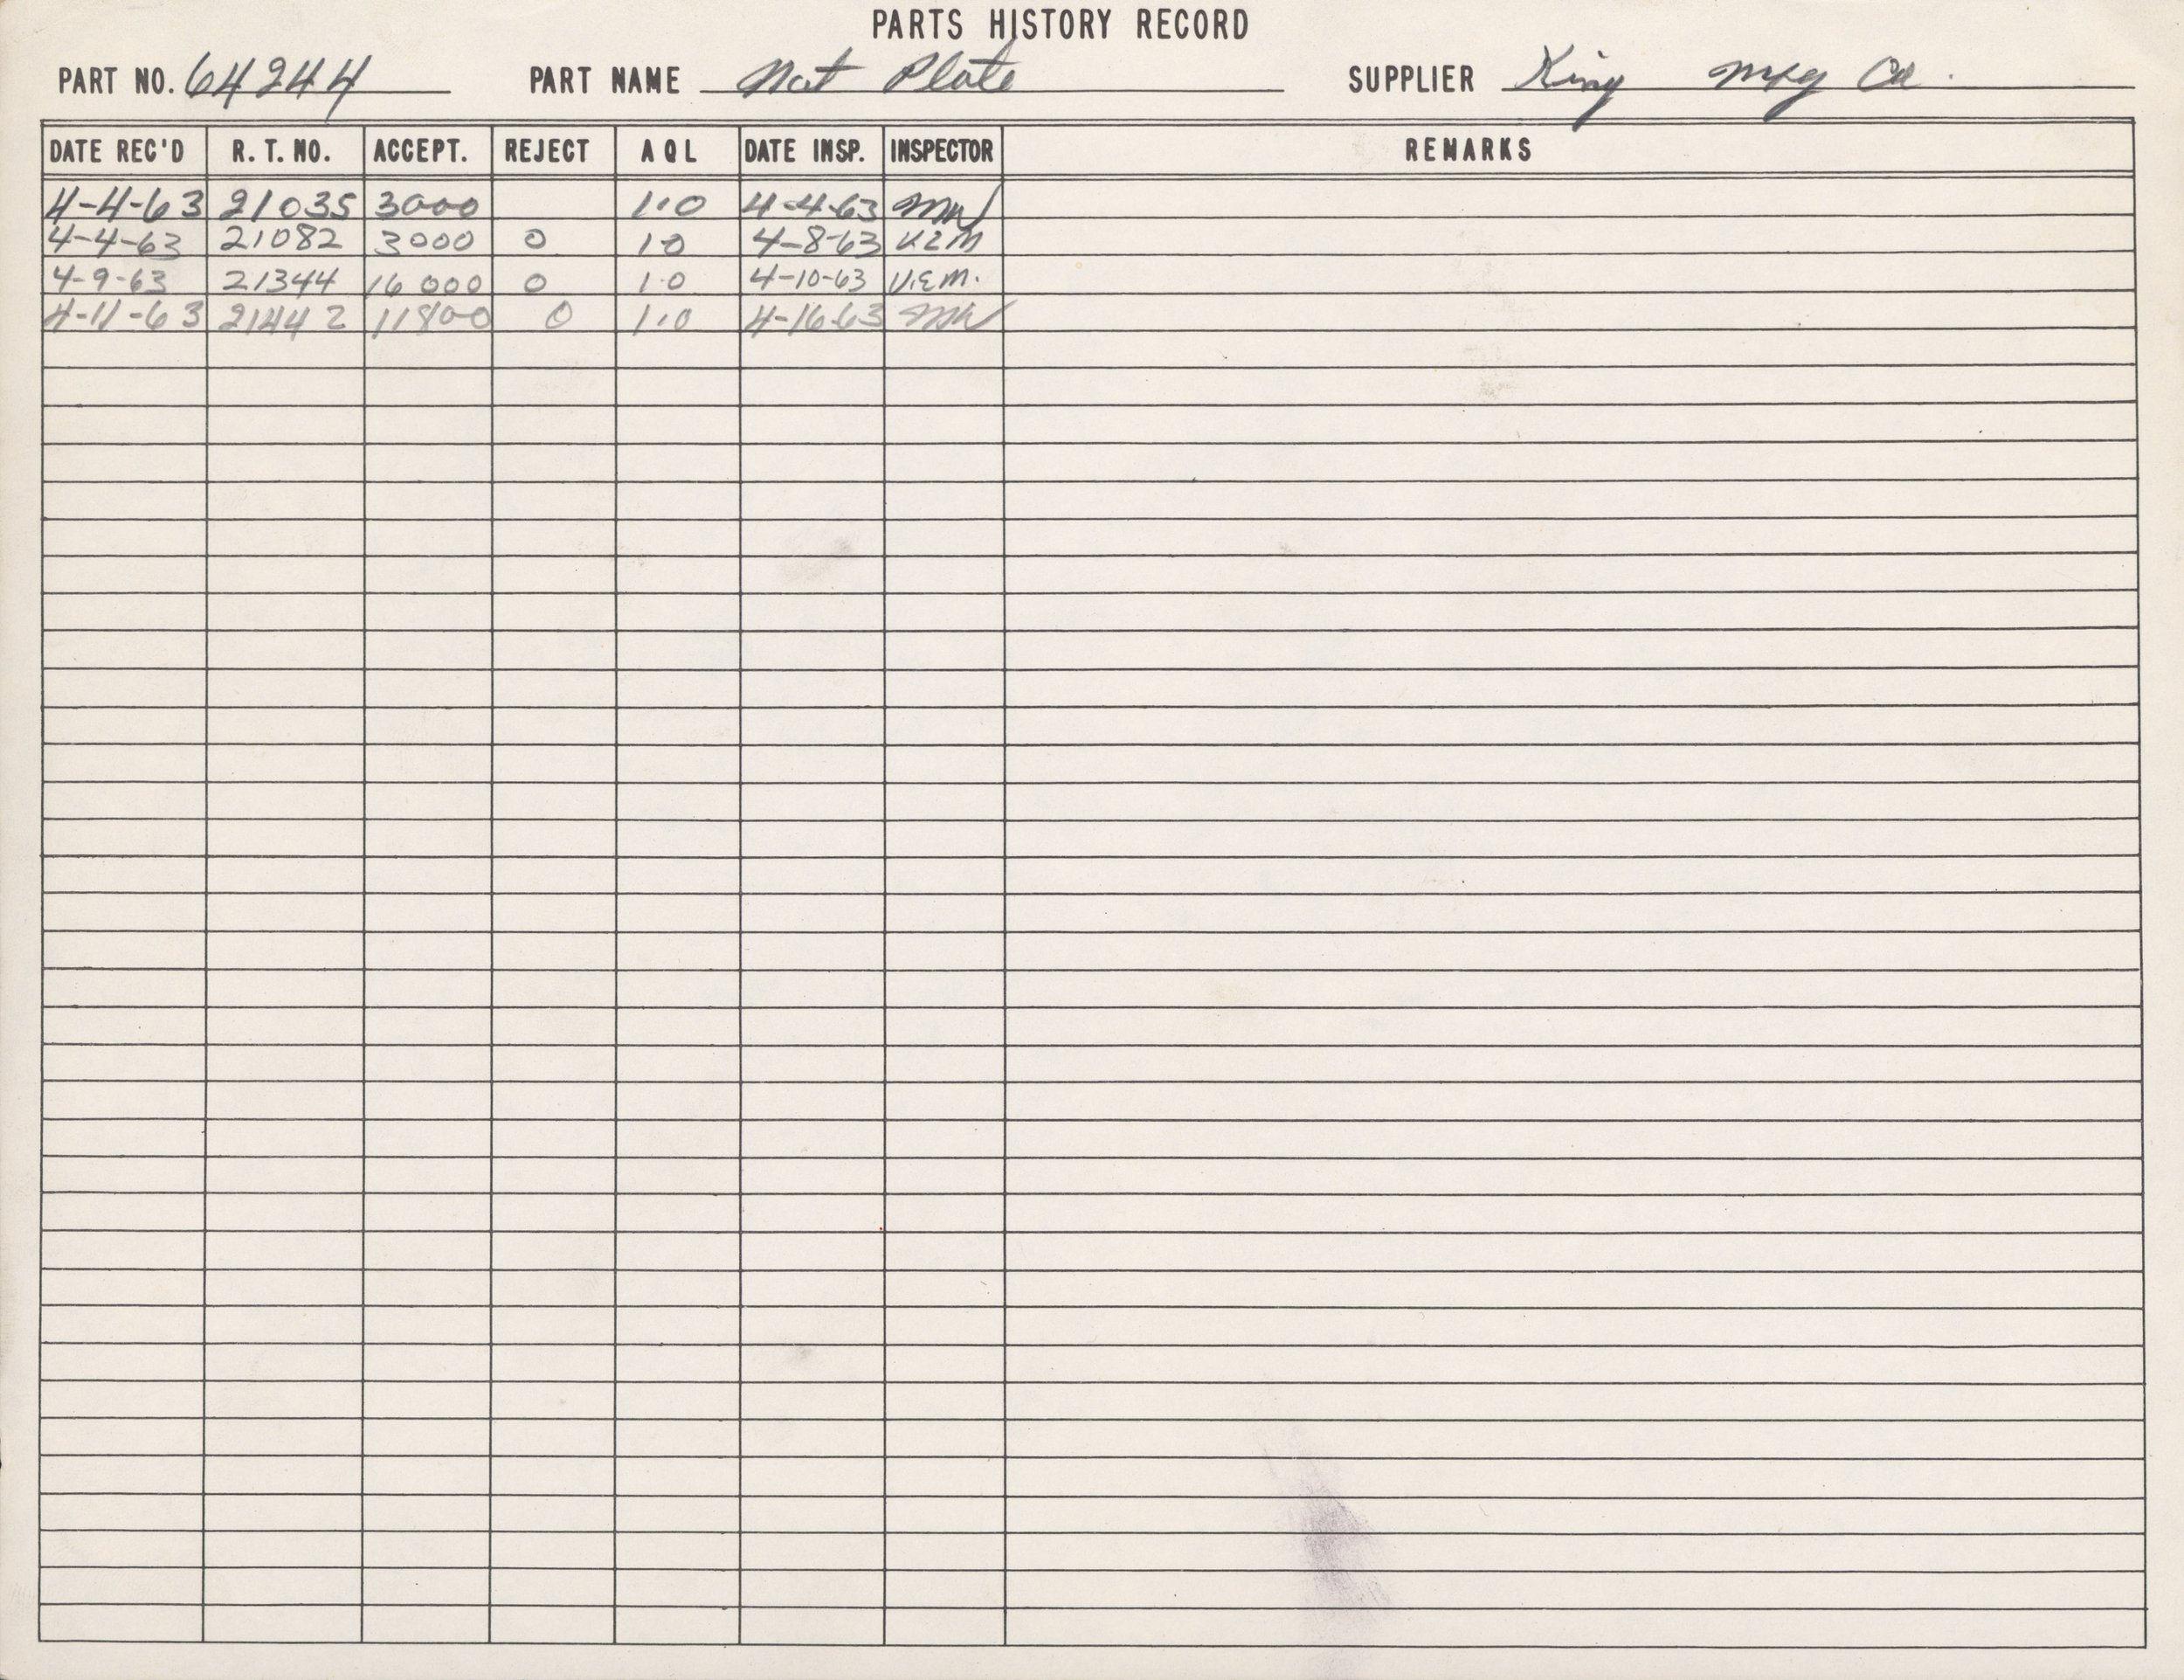 PARTS HISTORY RECORD
PART NO. 64244 PART NAME Nut Plate SUPPLIER King Mfg Co.
DATE REC'D R.T. NO. ACCEPT. REJECT AQL DATE INSP. INSPECTOR REMARKS
4-4-63 21035 3000 1.0 4-4-63
4-4-63 21082 3000 0 1.0 4-8-63 V.E.M
4-9-63 21344 16000 0 1.0 4-10-63 V.E.M.
4-11-63 21442 11800 0 1.0 4-16-63